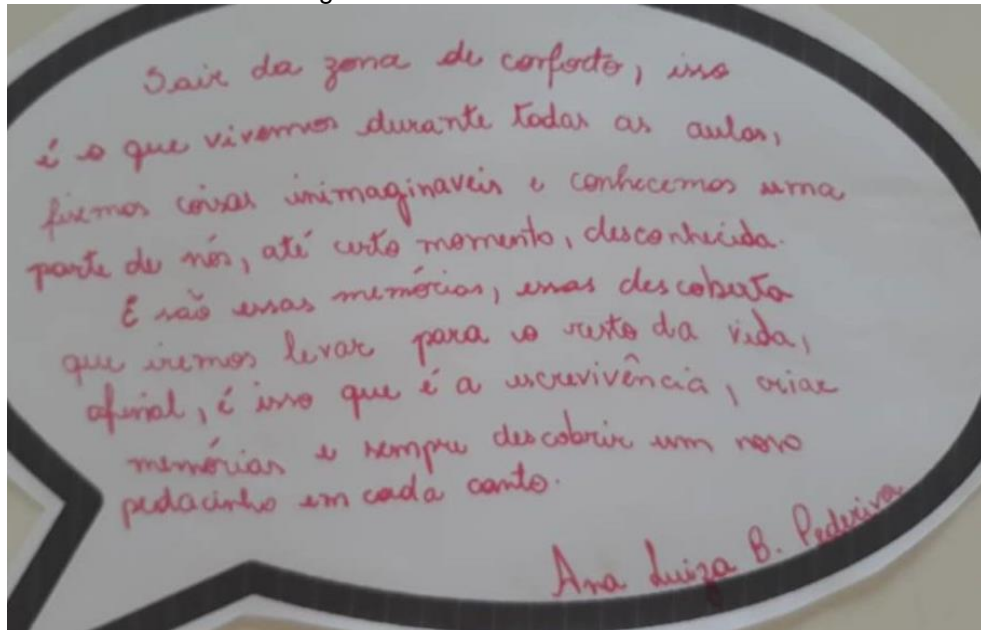 Sair da zona de conforto, isso
é o que vivemos durante todas as aulas,
fizemos coisas inimaginaveis e conhecemos uma
parte de nós, até certo momento, desconhecida.
E são essas memórias, essas descoberta
que iremos levar para o resto da vida,
afinal, é isso que é a escrevivência, criar
memórias e sempre descobrir um novo
pedacinho em cada canto.
Ana Luiza B. Pederiva